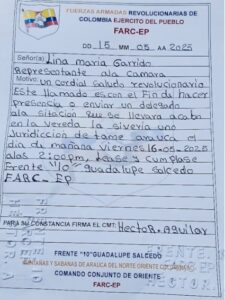 FUERZAS ARMADAS REVOLUCIONARIAS DE
COLOMBIA EJERCITO DEL PUEBLO
FARC-EP
DD 15 MM 05 AA 2025
Señor(a) Lina maria Garrido
Representante ala Camara
Motivo: un cordial saludo revolucionario
Este llamado es con el Fin de hacer
presencia o enviar un delegado
ala sitacion que se llevara acabo
en la vereda la siveria uno
Juridiccion de tame arauca el
dia de mañana viernes 16-05-2025
alas 2:00pm. Lease y Cumplase
Frente "10" Guadalupe Salcedo
FARC-EP
PARA SU CONSTANCIA FIRMA EL CMT: Hector. aguilar
FRENTE "10" GUADALUPE SALCEDO
MONTAÑAS Y SABANAS DE ARAUCA DEL NORTE ORIENTE COLOMBIANO
COMANDO CONJUNTO DE ORIENTE
FARC-EP